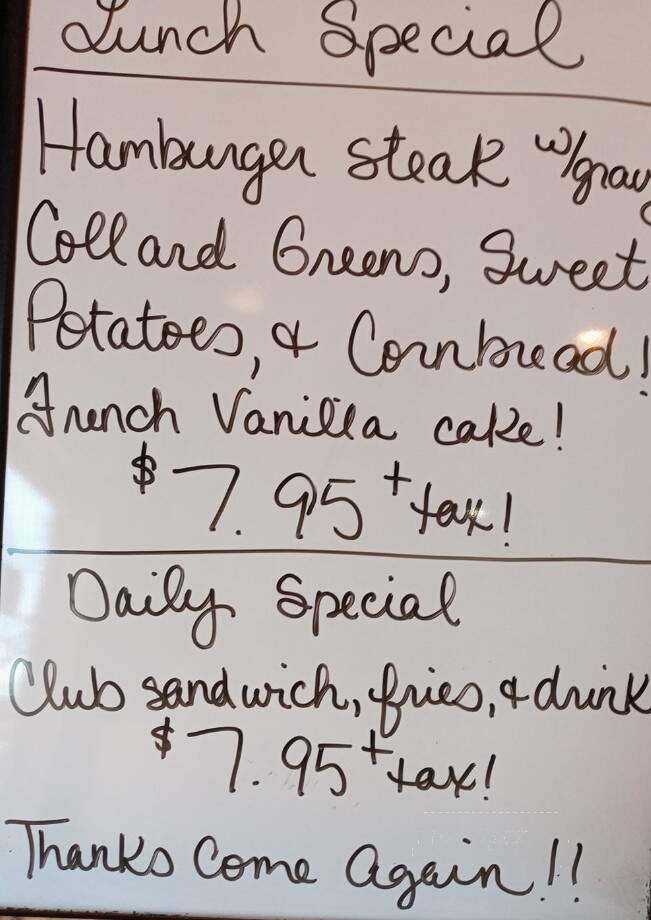 Lunch Special
Hamburger steak w/gravy
Collard Greens, Sweet
Potatoes, & Cornbread!
French Vanilla cake!
$7.95 + tax!
Daily Special
Club sandwich, fries, & drink
$7.95 + tax!
Thanks Come Again!!